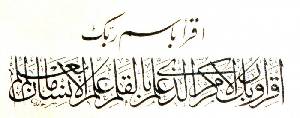 اقرأ باسم ربك
اقرأ وربك الأكرم الذي علم بالقلم علم الإنسان ما لم يعلم